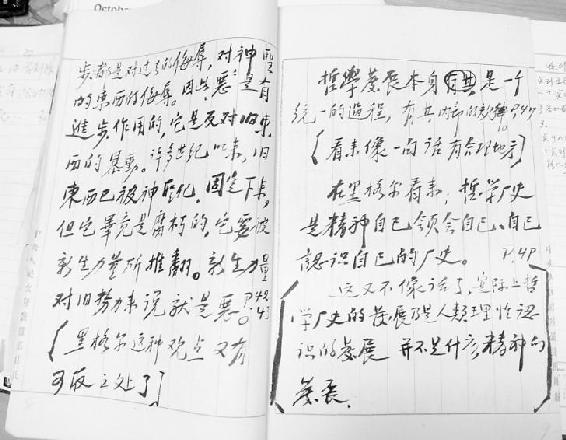 October
步都是对过去的侮辱，对神圣
的東西的侮辱。因此"恶"是有
進步作用的，它是反对旧東
西的暴动。许多世纪以来，旧
東西已被神圣化，固定下来，
但它畢竟是腐朽的，它要被
新生力量所推翻。新生力量
对旧势力来说就是恶。P.42-43
[黑格尔这种观点又有
可取之处了]
哲學發展本身是一个
统一的過程，有其内部的規律 P.49
(看来像一句话有合理地方)
在黑格尔看来，哲学史
是精神自己领会自己、自己
認识自己的厂史。 P.49
这又不像话了，实际上哲
学厂史的发展乃是人类理性認
识的發展 并不是什么精神的
發展。